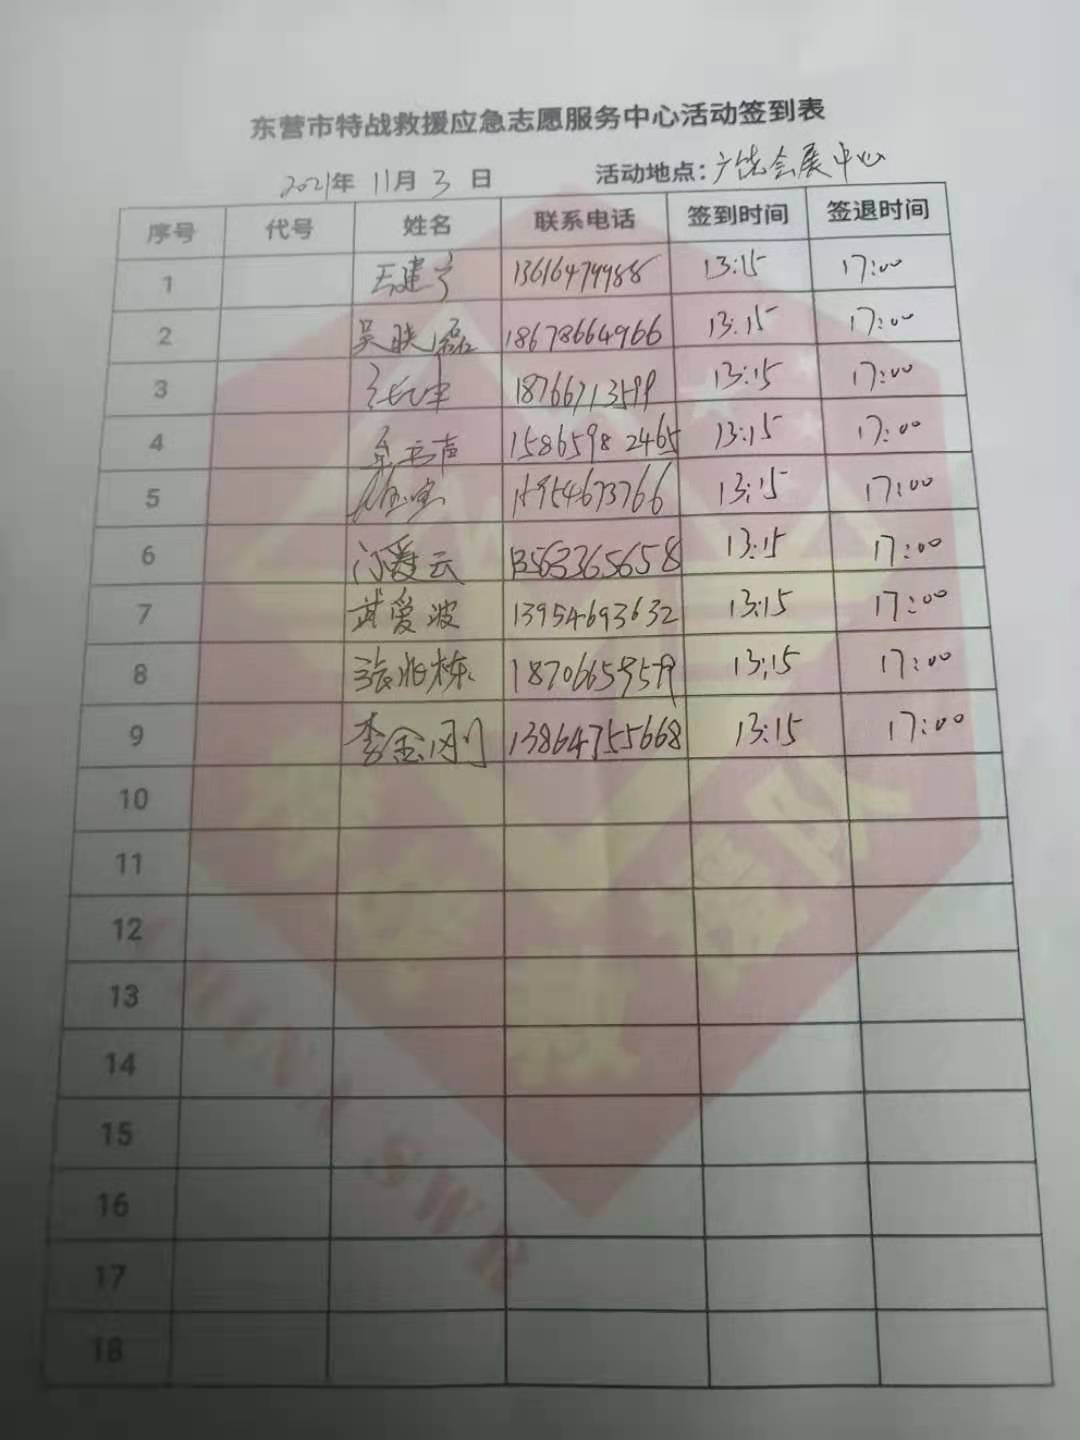 东营市特战救援应急志愿服务中心活动签到表
2021年 11月 3 日 活动地点:广饶会展中心
序号 代号 姓名 联系电话 签到时间 签退时间
1 王建宁 13616479988 13:15 17:00
2 吴联磊 18678664966 13:15 17:00
3 18766713599 13:15 17:00
4 15865982465 13:15 17:00
5 15954673766 13:15 17:00
6 门爱云 13563365658 13:15 17:00
7 武爱波 13954693632 13:15 17:00
8 张兆栋 18706659579 13:15 17:00
9 李金刚 13864755668 13:15 17:00
10
11
12
13
14
15
16
17
18